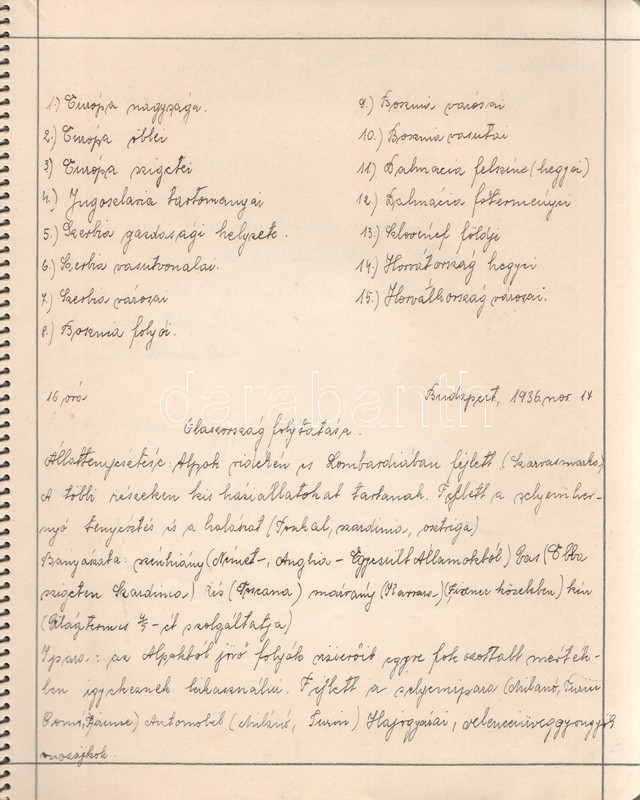 1.) Európa nagysága.
2.) Európa öblei
3.) Európa szigetei
4.) Jugoszlavia tartományai
5.) Szerbia gazdasági helyzete.
6.) Szerbia vasutvonalai.
7.) Szerbia városai
8.) Bosznia folyói.
9.) Bosznia városai
10.) Bosznia vasutai
11.) Dalmacia felszine (hegyei)
12.) Dalmácia főterményei
13.) földje
14.) Horvátország hegyei
15.) Horvátország városai.
16 óra
Budapest, 1936. nov. 14
darabanth
Olaszország folytatása.
Állattenyésztése: Alpok vidékén is Lombardiában fejlett (Szarvasmarha)
A többi részeken kis háziállatokat tartanak. Fejlett a selyemher-
nyó tenyésztés is a halászat (Tonhal, szardinia, osztriga)
Bányászata: szénhiány (Német-, Anglia - Egyesült Államokból) Vas (Elba
szigeten Szardinia) (Toscana) márvány (Karrara) (Firenze közelében) kén
(Világtermés 4/5-ét szolgáltatja)
Ipara: az Alpokból jövő folyók vizierőit egyre fokozottabb mérték-
ben igyekeznek kihasználni. Fejlett a selyemipara (Milánó, Turin
Como,) Automobil (Milánó, Turin) Hajógyárai, velenceiüveggyöngyök
mozájkok.